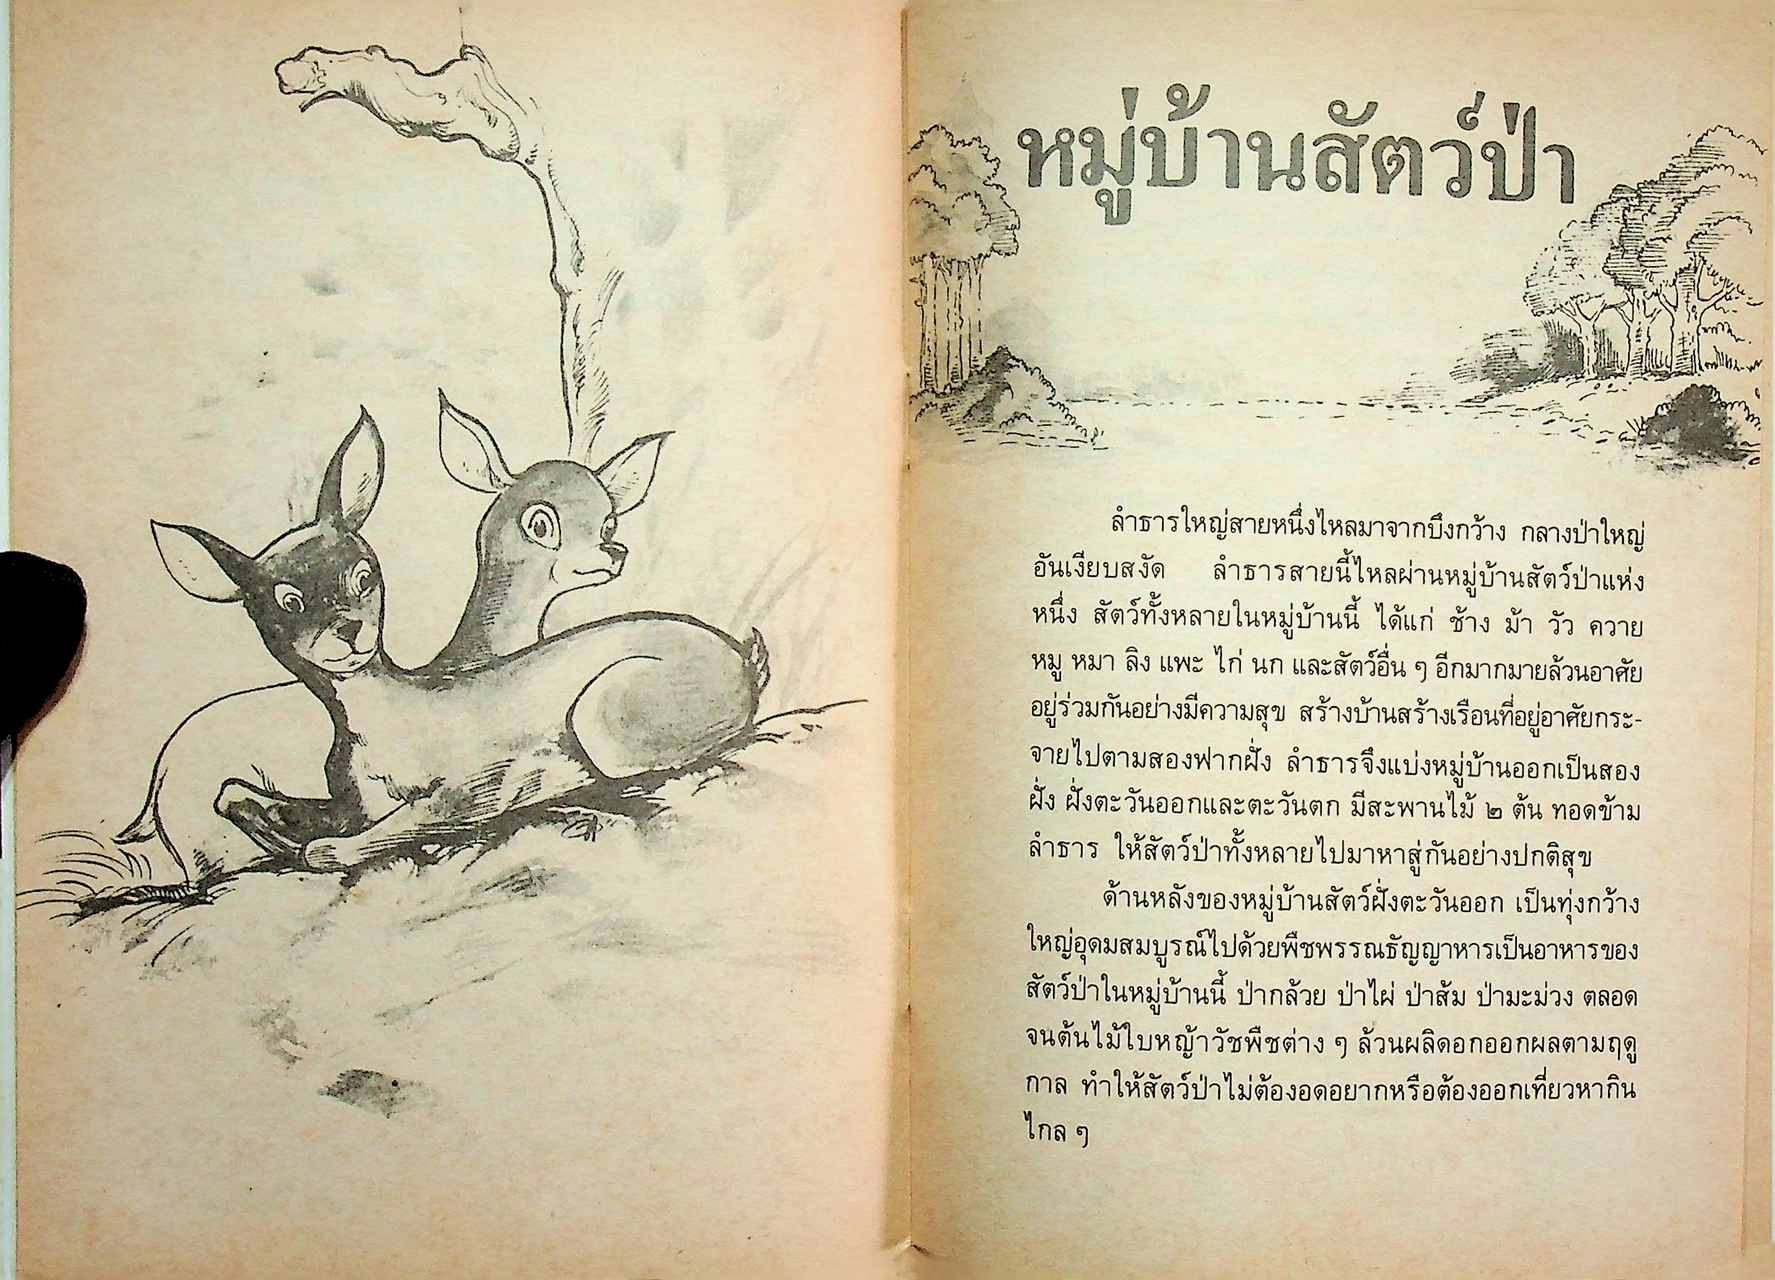 หมู่บ้านสัตว์ป่า
ลำธารใหญ่สายหนึ่งไหลมาจากบึงกว้าง กลางป่าใหญ่
อันเงียบสงัด ลำธารสายนี้ไหลผ่านหมู่บ้านสัตว์ป่าแห่ง
หนึ่ง สัตว์ทั้งหลายในหมู่บ้านนี้ ได้แก่ ช้าง ม้า วัว ควาย
หมู หมา ลิง แพะ ไก่ นก และสัตว์อื่น ๆ อีกมากมายล้วนอาศัย
อยู่ร่วมกันอย่างมีความสุข สร้างบ้านสร้างเรือนที่อยู่อาศัยกระ-
จายไปตามสองฟากฝั่ง ลำธารจึงแบ่งหมู่บ้านออกเป็นสอง
ฝั่ง ฝั่งตะวันออกและตะวันตก มีสะพานไม้ ๒ ต้น ทอดข้าม
ลำธาร ให้สัตว์ป่าทั้งหลายไปมาหาสู่กันอย่างปกติสุข
ด้านหลังของหมู่บ้านสัตว์ฝั่งตะวันออก เป็นทุ่งกว้าง
ใหญ่อุดมสมบูรณ์ไปด้วยพืชพรรณธัญญาหารเป็นอาหารของ
สัตว์ป่าในหมู่บ้านนี้ ป่ากล้วย ป่าไผ่ ป่าส้ม ป่ามะม่วง ตลอด
จนต้นไม้ใบหญ้าวัชพืชต่าง ๆ ล้วนผลิดอกออกผลตามฤดู
กาล ทำให้สัตว์ป่าไม่ต้องอดอยากหรือต้องออกเที่ยวหากิน
ไกล ๆ